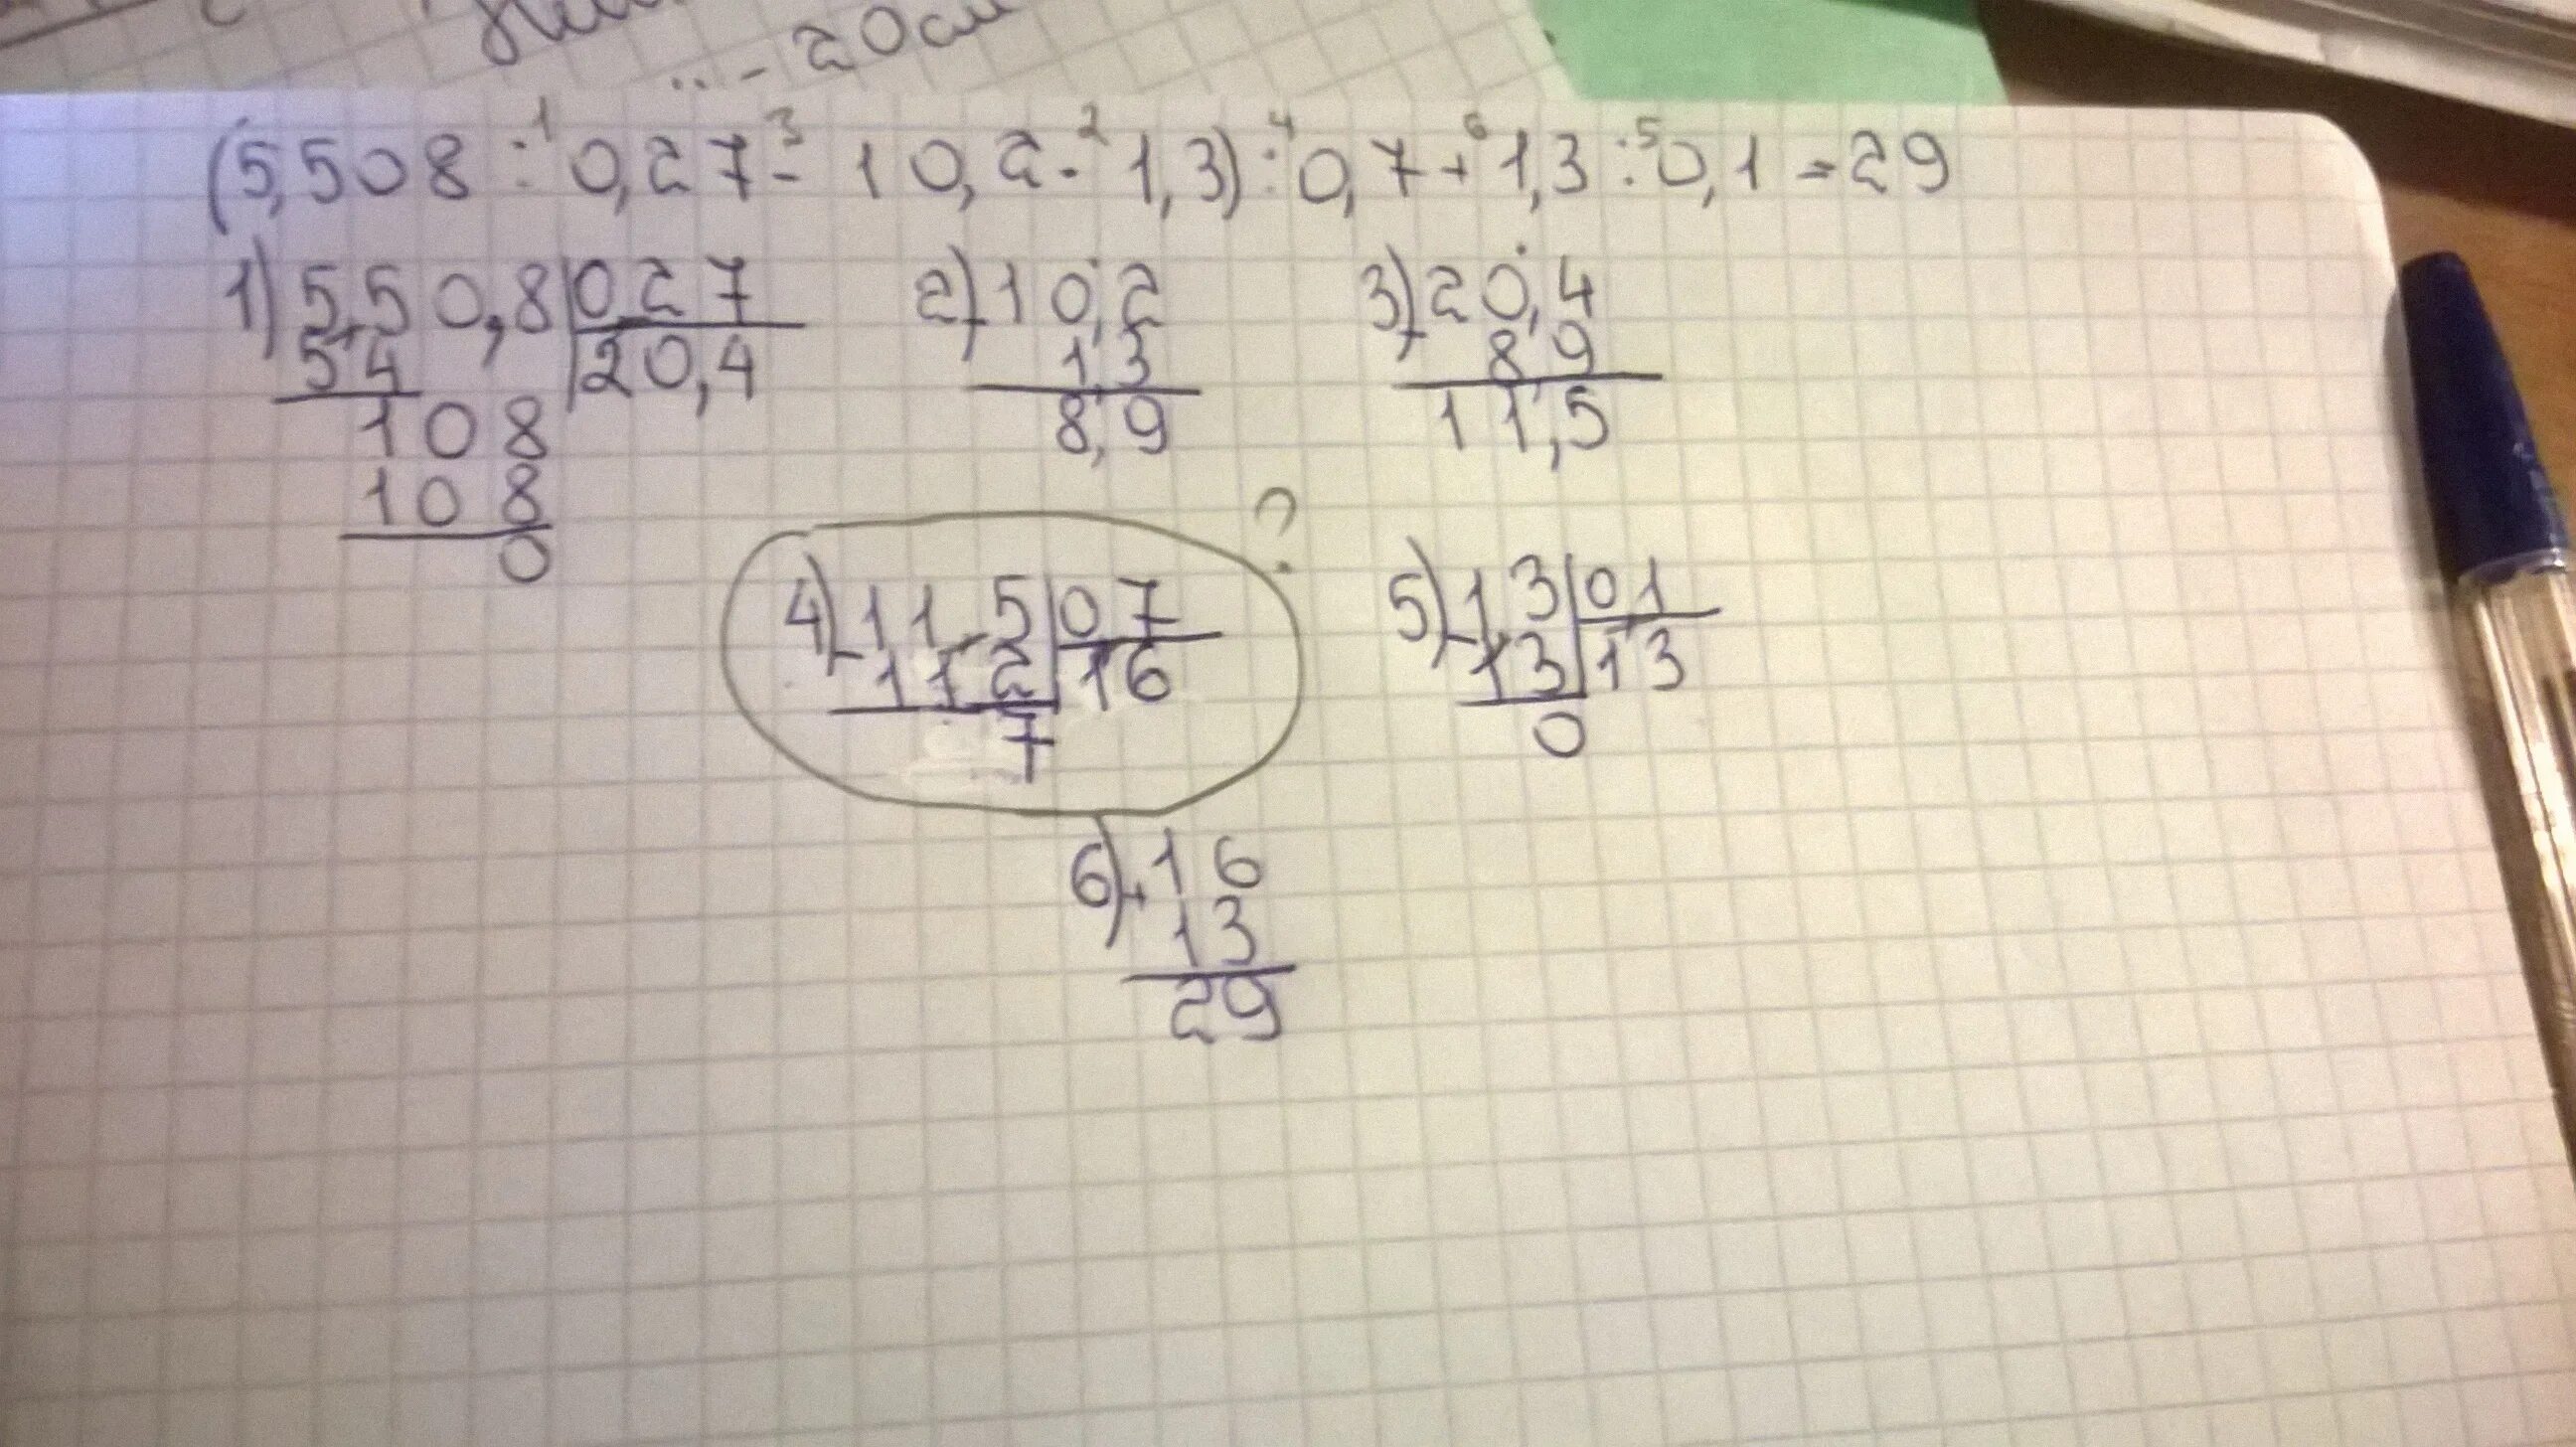 20см
(5,508 : 0,27 - 10,2 · 1,3) : 0,7 + 1,3 : 0,1 = 29
1 3 2 4 6 5
1) 550,8 | 027
54 | 20,4
108
108
0
2) - 10,2
1,3
8,9
3) - 20,4
8,9
11,5
?
4) - 11,5 | 07
112 | 16
7
5) - 13 | 01
13 | 13
0
6) + 16
13
29